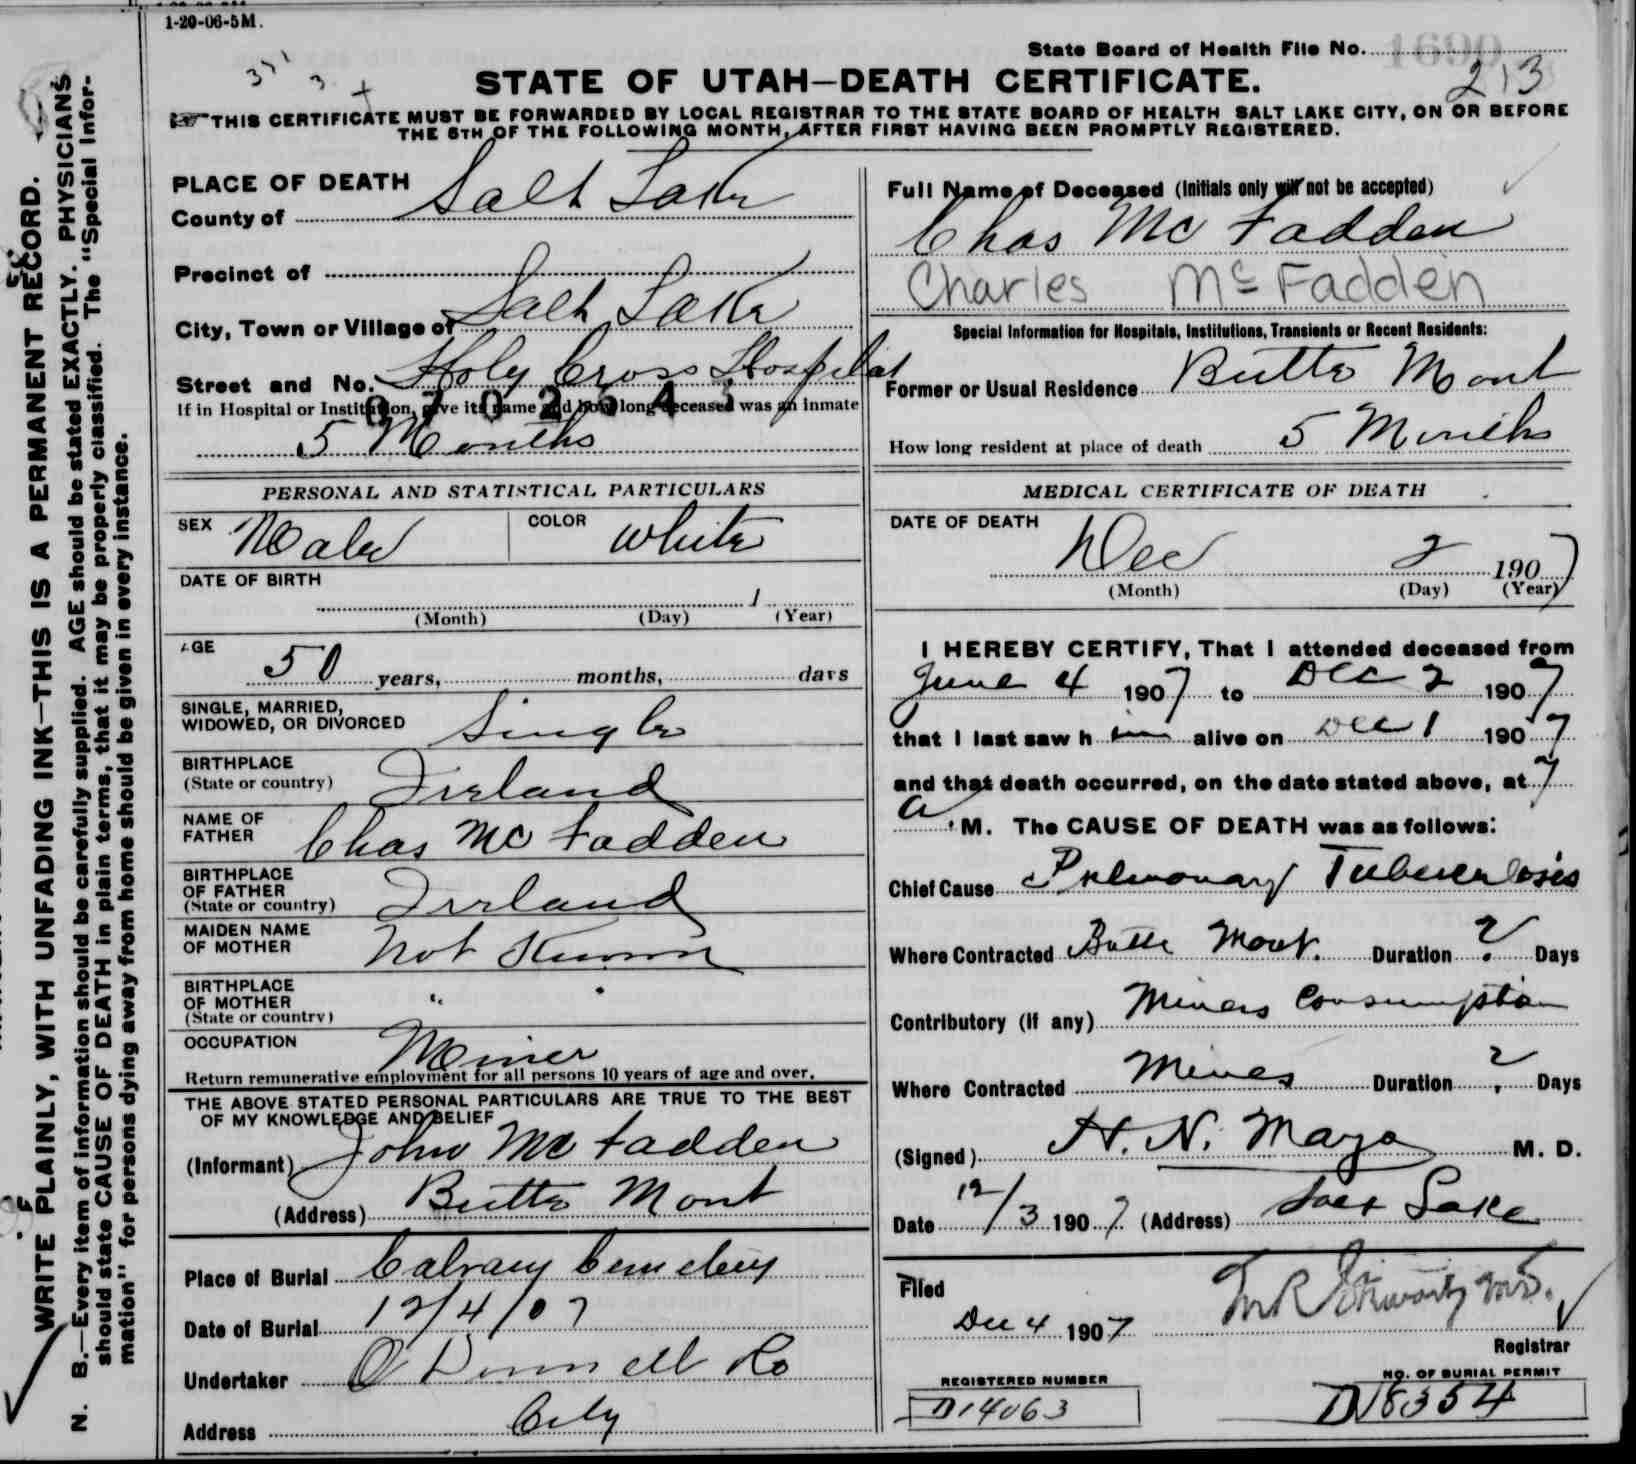 1-20-06-5M.
State Board of Health File No. 1690
213
STATE OF UTAH—DEATH CERTIFICATE.
THIS CERTIFICATE MUST BE FORWARDED BY LOCAL REGISTRAR TO THE STATE BOARD OF HEALTH SALT LAKE CITY, ON OR BEFORE
THE 5TH OF THE FOLLOWING MONTH, AFTER FIRST HAVING BEEN PROMPTLY REGISTERED.
WRITE PLAINLY, WITH UNFADING INK—THIS IS A PERMANENT RECORD.
N. B.—Every item of information should be carefully supplied. AGE should be stated EXACTLY. PHYSICIANS
should state CAUSE OF DEATH in plain terms, that it may be properly classified. The "Special Infor-
mation" for persons dying away from home should be given in every instance.
PLACE OF DEATH
County of Salt Lake
Precinct of
City, Town or Village of Salt Lake
Street and No. Holy Cross Hospital
If in Hospital or Institution, give its name and how long deceased was an inmate
5 Months
Full Name of Deceased (Initials only will not be accepted)
Chas Mc Fadden
Charles Mc Fadden
Special Information for Hospitals, Institutions, Transients or Recent Residents:
Former or Usual Residence Butte Mont
How long resident at place of death 5 Months
PERSONAL AND STATISTICAL PARTICULARS
SEX Male COLOR White
DATE OF BIRTH
1
(Month) (Day) (Year)
AGE
50 years, months, days
SINGLE, MARRIED,
WIDOWED, OR DIVORCED Single
BIRTHPLACE
(State or country) Ireland
NAME OF
FATHER Chas Mc Fadden
BIRTHPLACE
OF FATHER
(State or country) Ireland
MAIDEN NAME
OF MOTHER Not Known
BIRTHPLACE
OF MOTHER " "
(State or country)
OCCUPATION Miner
Return remunerative employment for all persons 10 years of age and over.
THE ABOVE STATED PERSONAL PARTICULARS ARE TRUE TO THE BEST
OF MY KNOWLEDGE AND BELIEF
(Informant) John Mc Fadden
(Address) Butte Mont
Place of Burial Calvary Cemetery
Date of Burial 12/4/07
Undertaker O'Donnell Co
Address City
MEDICAL CERTIFICATE OF DEATH
DATE OF DEATH
Dec 2 1907
(Month) (Day) (Year)
I HEREBY CERTIFY, That I attended deceased from
June 4 1907 to Dec 2 1907
that I last saw h im alive on Dec 1 1907
and that death occurred, on the date stated above, at 7
a M. The CAUSE OF DEATH was as follows:
Chief Cause Pulmonary Tuberculosis
Where Contracted Butte Mont. Duration ? Days
Contributory (if any) Miners Consumption
Where Contracted Mines Duration ? Days
(Signed) H. N. Mayo M. D.
Date 12/3 1907 (Address) Salt Lake
Filed
Dec 4 1907
Registrar
REGISTERED NUMBER
D14063
NO. OF BURIAL PERMIT
D18354